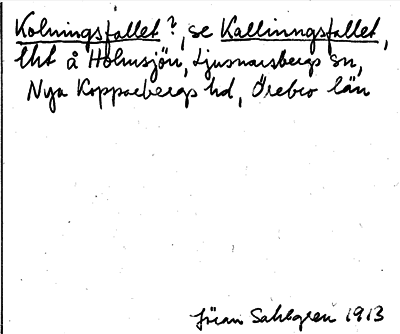 Kolningsfallet?, se Kallinngsfallet,
tht å Holmsjön, Ljusnarsbergs sn,
Nya Kopparbergs hd, Örebro län
Jöran Sahlgren 1913